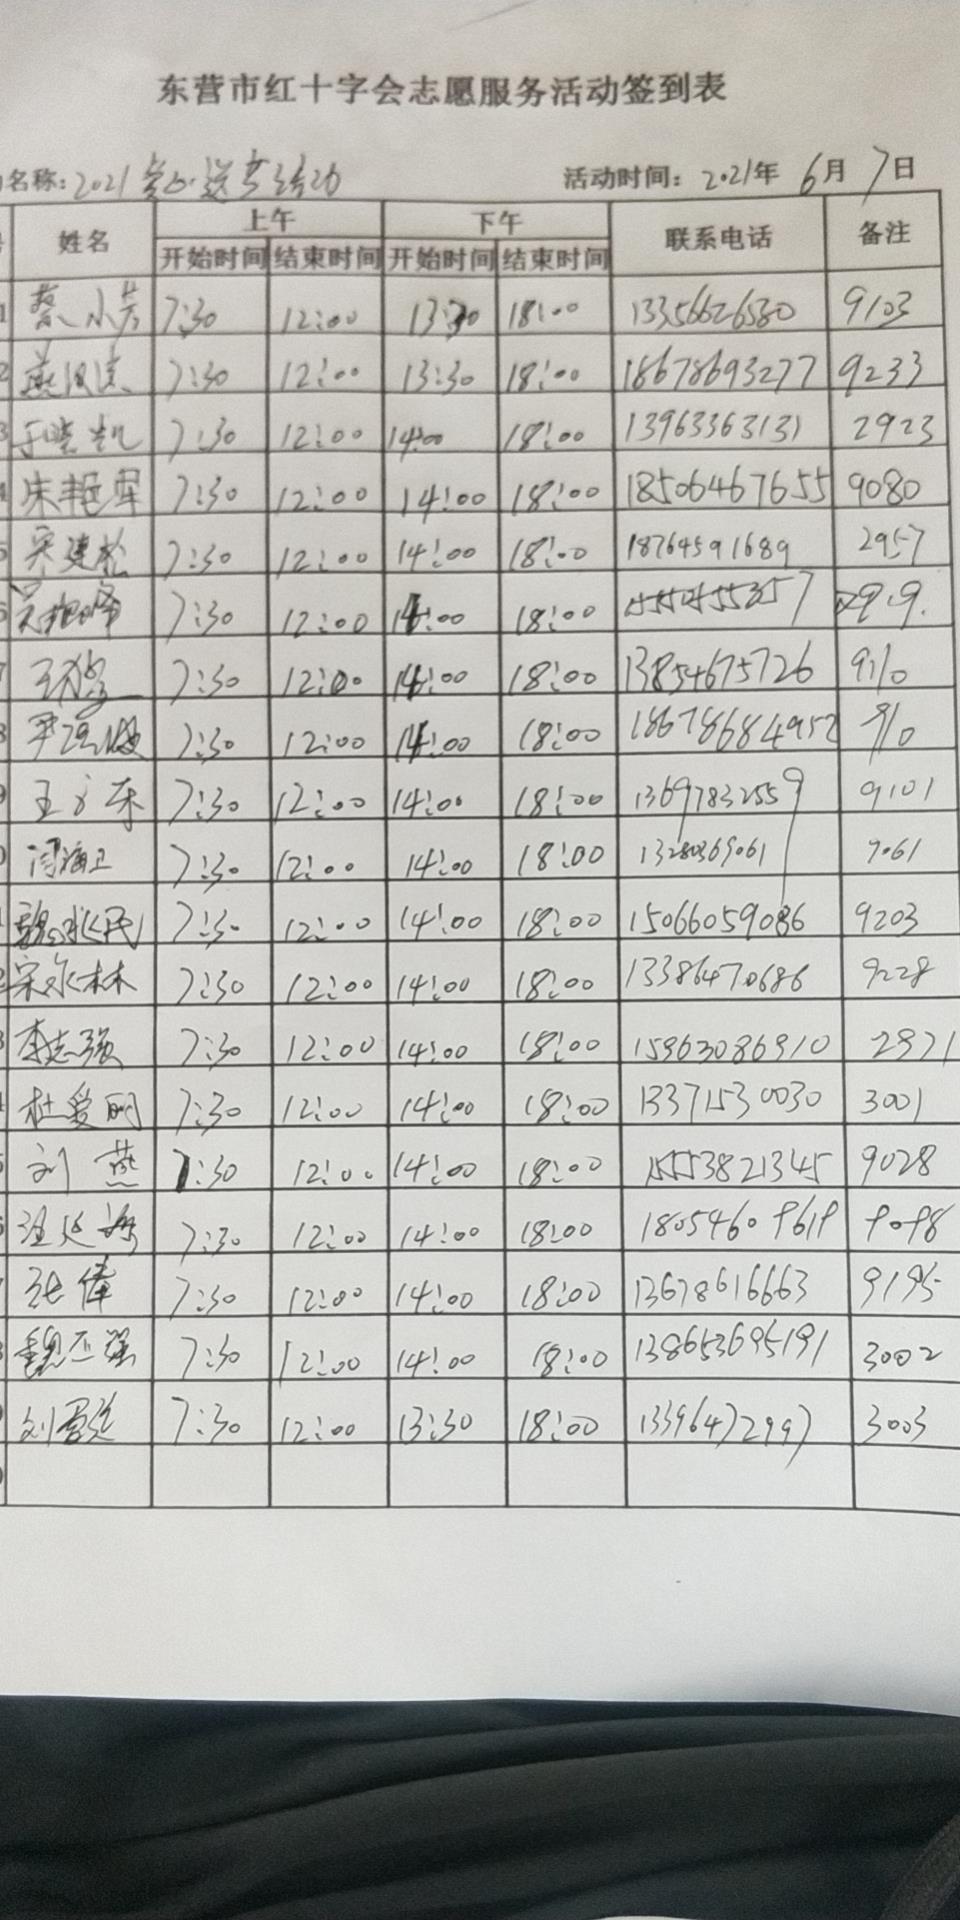 东营市红十字会志愿服务活动签到表
名称: 2021 活动 活动时间: 2021年 6月 7日
姓名 上午 下午 联系电话 备注
开始时间 结束时间 开始时间 结束时间
蔡小芳 7:30 12:00 13:30 18:00 13356626580 9103
燕 7:30 12:00 13:30 18:00 18678693277 9233
于晓凯 7:30 12:00 14:00 18:00 13963363131 2923
宋艳军 7:30 12:00 14:00 18:00 18506467655 9080
宋建松 7:30 12:00 14:00 18:00 18764591689 2957
吴艳峰 7:30 12:00 14:00 18:00
王 7:30 12:00 14:00 18:00 13854675726 9110
尹 7:30 12:00 14:00 18:00 18678684952 910
王广东 7:30 12:00 14:00 18:00 13697832559 9101
闫海卫 7:30 12:00 14:00 18:00 13280369061 9061
魏永民 7:30 12:00 14:00 18:00 15066059086 9203
宋永林 7:30 12:00 14:00 18:00 13386470686 9228
李志强 7:30 12:00 14:00 18:00 15963086910 2971
杜爱丽 7:30 12:00 14:00 18:00 13371530030 3001
刘燕 7:30 12:00 14:00 18:00 15553821345 9028
汪延 7:30 12:00 14:00 18:00 18054609619 9098
张伟 7:30 12:00 14:00 18:00 13678616663 9195
魏玉强 7:30 12:00 14:00 18:00 13865369519 3002
刘 7:30 12:00 13:30 18:00 13396472997 3003